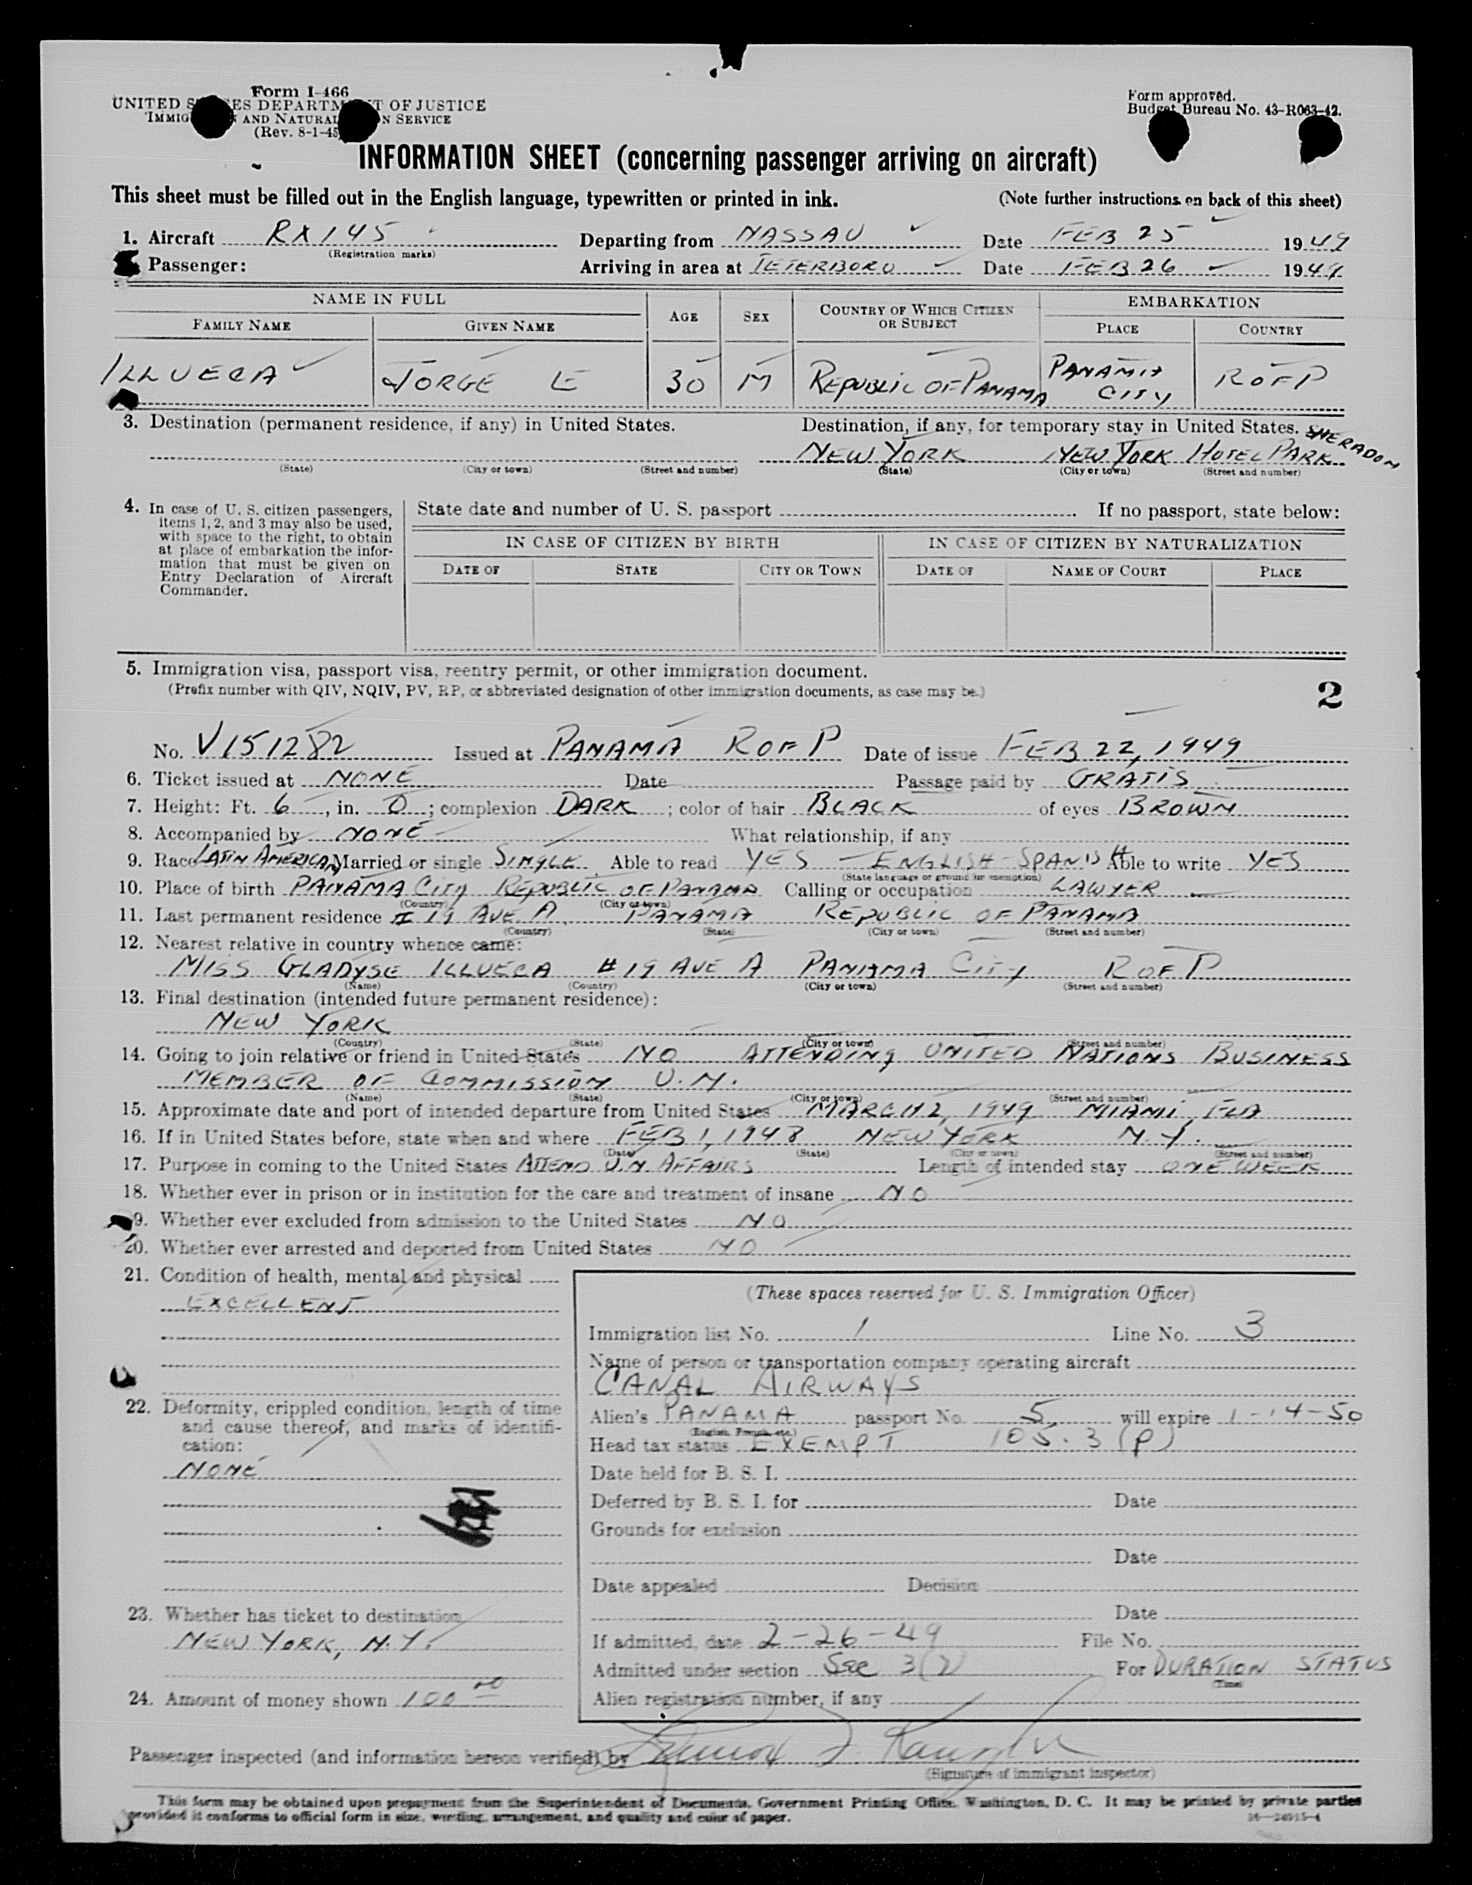 Form I-466
UNITED STATES DEPARTMENT OF JUSTICE
IMMIGRATION AND NATURALIZATION SERVICE
(Rev. 8-1-45)
Form approved.
Budget Bureau No. 43-R063-42.
INFORMATION SHEET (concerning passenger arriving on aircraft)
This sheet must be filled out in the English language, typewritten or printed in ink. (Note further instructions on back of this sheet)
1. Aircraft RX145 Departing from NASSAU Date FEB 25 1949
(Registration marks)
Passenger: Arriving in area at TETERBORO Date FEB 26 1949
NAME IN FULL AGE SEX COUNTRY OF WHICH CITIZEN OR SUBJECT EMBARKATION
FAMILY NAME GIVEN NAME PLACE COUNTRY
ILLUECA JORGE E 30 M REPUBLIC OF PANAMA PANAMA CITY R OF P
3. Destination (permanent residence, if any) in United States. Destination, if any, for temporary stay in United States. SHERADON
NEW YORK NEW YORK HOTEL PARK
(State) (City or town) (Street and number) (State) (City or town) (Street and number)
4. In case of U. S. citizen passengers, items 1, 2, and 3 may also be used, with space to the right, to obtain at place of embarkation the information that must be given on Entry Declaration of Aircraft Commander.
State date and number of U. S. passport If no passport, state below:
IN CASE OF CITIZEN BY BIRTH IN CASE OF CITIZEN BY NATURALIZATION
DATE OF STATE CITY OR TOWN DATE OF NAME OF COURT PLACE
5. Immigration visa, passport visa, reentry permit, or other immigration document.
(Prefix number with QIV, NQIV, PV, RP, or abbreviated designation of other immigration documents, as case may be.)
2
No. V151282 Issued at PANAMA R OF P Date of issue FEB 22, 1949
6. Ticket issued at NONE Date Passage paid by GRATIS
7. Height: Ft. 6, in. 0; complexion DARK; color of hair BLACK of eyes BROWN
8. Accompanied by NONE What relationship, if any
9. Race LATIN AMERICAN Married or single SINGLE Able to read YES - ENGLISH - SPANISH Able to write YES
(State language or ground for exemption)
10. Place of birth PANAMA CITY REPUBLIC OF PANAMA Calling or occupation LAWYER
(Country) (City or town)
11. Last permanent residence # 19 AVE A PANAMA REPUBLIC OF PANAMA
(Country) (State) (City or town) (Street and number)
12. Nearest relative in country whence came:
MISS GLADYSE ILLUECA # 19 AVE A PANAMA CITY R OF P
(Name) (Country) (City or town) (Street and number)
13. Final destination (intended future permanent residence):
NEW YORK
(Country) (State) (City or town) (Street and number)
14. Going to join relative or friend in United States NO ATTENDING UNITED NATIONS BUSINESS
MEMBER OF COMMISSION U.N.
(Name) (State) (City or town) (Street and number)
15. Approximate date and port of intended departure from United States MARCH 2, 1949 MIAMI, FLA
16. If in United States before, state when and where FEB 1, 1948 NEW YORK N.Y.
(Date) (State) (City or town) (Street and number)
17. Purpose in coming to the United States ATTEND U.N. AFFAIRS Length of intended stay ONE WEEK
18. Whether ever in prison or in institution for the care and treatment of insane NO
9. Whether ever excluded from admission to the United States NO
20. Whether ever arrested and deported from United States NO
21. Condition of health, mental and physical
EXCELLENT
22. Deformity, crippled condition, length of time and cause thereof, and marks of identification:
NONE
23. Whether has ticket to destination
NEW YORK, N.Y.
24. Amount of money shown 100.00
(These spaces reserved for U. S. Immigration Officer)
Immigration list No. 1 Line No. 3
Name of person or transportation company operating aircraft
CANAL AIRWAYS
Alien's PANAMA passport No. 5, will expire 1-14-50
(English, French, etc.)
Head tax status EXEMPT 105.3 (p)
Date held for B. S. I.
Deferred by B. S. I. for Date
Grounds for exclusion
Date
Date appealed Decision
Date
If admitted, date 2-26-49 File No.
Admitted under section Sec 3(2) For DURATION STATUS
(Time)
Alien registration number, if any
Passenger inspected (and information hereon verified) by
(Signature of immigrant inspector)
This form may be obtained upon prepayment from the Superintendent of Documents, Government Printing Office, Washington, D. C. It may be printed by private parties
provided it conforms to official form in size, wording, arrangement, and quality and color of paper. 16—24915-4